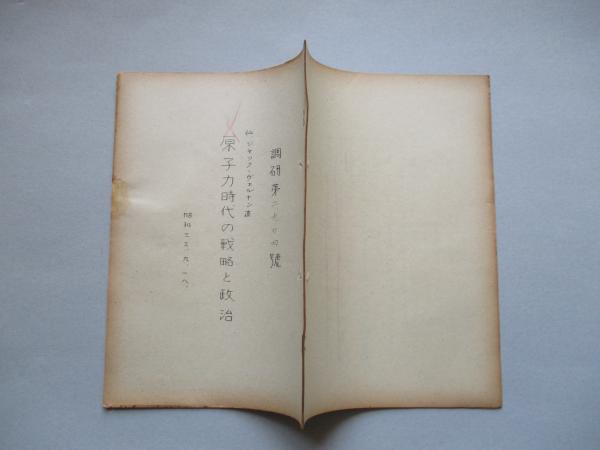 調研第二七〇四號
仏 ジャック・ヴェルナン 述
原子力時代の戦略と政治
昭和三三、九、一八、